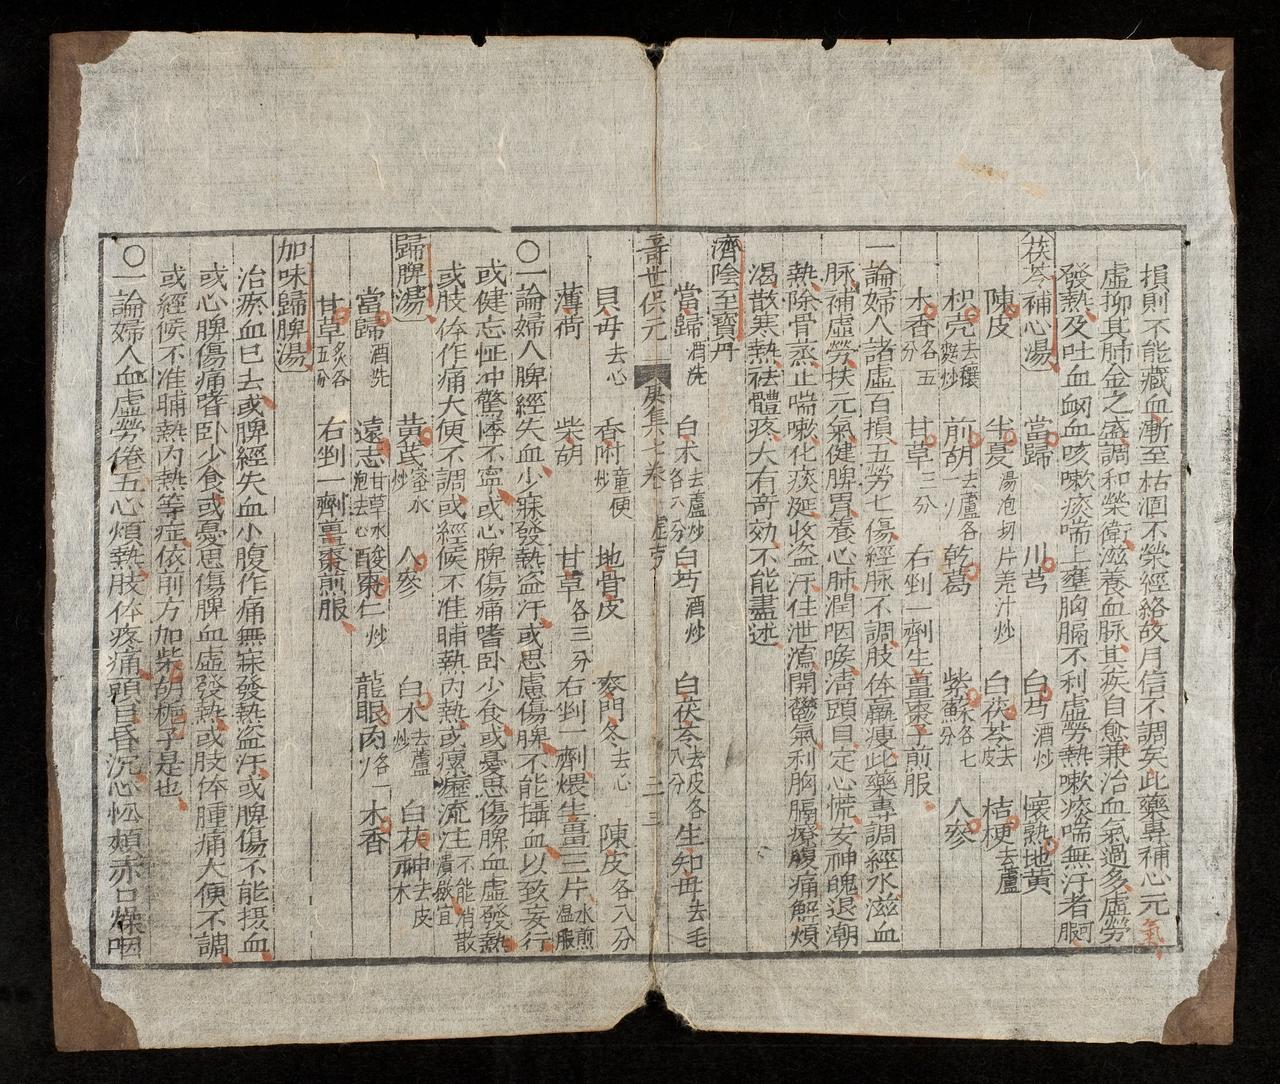 損則不能藏血漸至枯涸不榮經絡故月信不調矣此藥專補心元氣
虛抑其肺金之盛調和榮衛滋養血脉其疾自愈兼治血氣過多虛勞
發熱及吐血衂血咳嗽痰喘上壅胸膈不利虛勞熱嗽痰喘無汗者可服
茯苓補心湯 當歸 川芎 白芍酒炒 懷熟地黃
陳皮 半夏湯泡切片羌汁炒 白茯苓去皮 桔梗去蘆
枳壳去穰麩炒 前胡去蘆各一 乾葛 紫蘇各七分 人參
木香各五分 甘草三分 右剉一劑生薑棗子煎服
一論婦人諸虛百損五勞七傷經脉不調肢体羸瘦此藥專調經水滋血
脉補虛勞扶元氣健脾胃養心肺潤咽喉清頭目定心慌安神魄退潮
熱除骨蒸止喘嗽化痰涎收盗汗住泄瀉開鬱氣利胸膈療腹痛解煩
渴散寒熱祛體疼大有奇効不能盡述
濟陰至寶丹
當歸酒洗 白术去蘆炒各八分 白芍酒炒 白茯苓去皮各八分 生知毋去毛
壽世保元 庚集七卷 虛勞 二三
貝毋去心 香附童便炒 地骨皮 麥門冬去心 陳皮各八分
薄荷 柴胡 甘草各三分 右剉一劑煨生薑三片水煎温服
〇一論婦人脾經失血少寐發熱盗汗或思慮傷脾不能攝血以致妄行
或健忘怔冲驚悸不寧或心脾傷痛嗜卧少食或憂思傷脾血虛發熱
或肢体作痛大便不調或經候不准晡熱内熱或瘰癧流注不能消散潰斂宜
歸脾湯 黃芪蜜水炒 人參 白术去蘆炒 白茯神去皮木
當歸酒洗 遠志甘草水泡去心 酸棗仁炒 龍眼肉各一 木香
甘草炙各五分 右剉一劑薑棗煎服
加味歸脾湯
治瘀血已去或脾經失血小腹作痛無寐發熱盗汗或脾傷不能摄血
或心脾傷痛嗜卧少食或憂思傷脾血虛發熱或肢体腫痛大便不調
或經候不准晡熱内熱等症依前方加柴胡梔子是也
〇一論婦人血虛勞倦五心煩熱肢体疼痛頭目昏沉心忪頰赤口燥咽